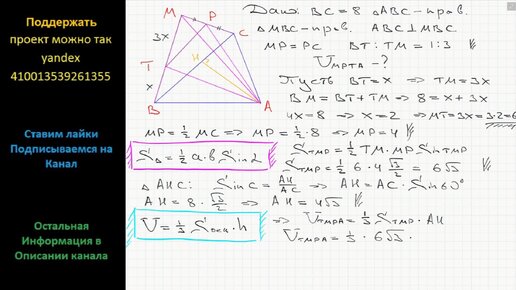 Поддержать
проект можно так
yandex
410013539261355
Ставим лайки
Подписываемся на
Канал
Остальная
Информация в
Описании канала
M
P
C
3x
H
T
x
B
A
Дано: BC = 8 ΔABC – прав.
ΔMBC – прав. ABC⊥MBC
MP = PC BT : TM = 1 : 3
V_MPTA – ?
Пусть BT = x ⇒ TM = 3x
BM = BT + TM ⇒ 8 = x + 3x
4x = 8 ⇒ x = 2 ⇒ MT = 3x = 3·2 = 6
MP = 1/2 MC ⇒ MP = 1/2 · 8 ⇒ MP = 4
S_Δ = 1/2 a·b sin α
S_TMP = 1/2 TM · MP sin TMP
S_TMP = 1/2 6 · 4 √3/2 = 6√3
ΔAHC: sin C = AH/AC ⇒ AH = AC · sin 60°
AH = 8 · √3/2 ⇒ AH = 4√3
V = 1/3 S_осн · h
⇒ V_TMPA = 1/3 S_TMP · AH
V_TMPA = 1/3 · 6√3 ·